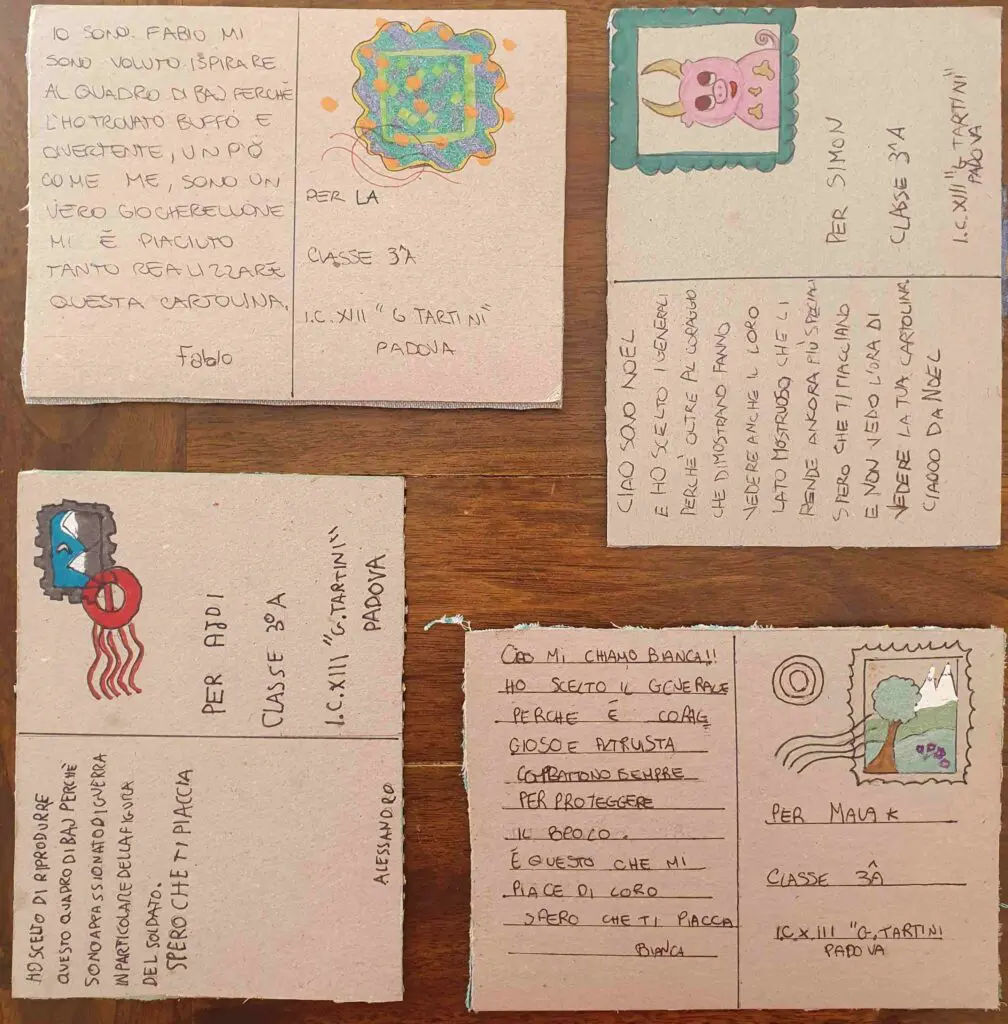 IO SONO FABIO MI
SONO VOLUTO ISPIRARE
AL QUADRO DI BAJ PERCHÈ
L'HO TROVATO BUFFO E
DIVERTENTE, UN PÒ
COME ME, SONO UN
VERO GIOCHERELLONE
MI È PIACIUTO
TANTO REALIZZARE
QUESTA CARTOLINA.
Fabio
PER LA
CLASSE 3^A
I.C. XIII "G TARTINI"
PADOVA
PER SIMON
CLASSE 3^A
I.C. XIII "G TARTINI"
PADOVA
CIAO SONO NOEL
E HO SCELTO I GENERALI
PERCHÈ OLTRE AL CORAGGIO
CHE DIMOSTRANO FANNO
VEDERE ANCHE IL LORO
LATO MOSTRUOSO, CHE LI
RENDE ANCORA PIÙ SPECIALI
SPERO CHE TI PIACCIANO
E NON VEDO L'ORA DI
VEDERE LA TUA CARTOLINA.
CIAOOO DA NOEL
PER AJDI
CLASSE 3° A
I.C. XIII "G. TARTINI"
PADOVA
HO SCELTO DI RIPRODURRE
QUESTO QUADRO DI BAJ PERCHÈ
SONO APPASSIONATO DI GUERRA
IN PARTICOLARE DELLA FIGURA
DEL SOLDATO.
SPERO CHE TI PIACCIA
ALESSANDRO
CIAO MI CHIAMO BIANCA!!
HO SCELTO IL GENERALE
PERCHE È CORAG
GIOSO E ALTRUISTA
COMBATTONO SEMPRE
PER PROTEGGERE
IL
È QUESTO CHE MI
PIACE DI LORO
SPERO CHE TI PIACCIA
BIANCA
PER
CLASSE 3^A
I.C.XIII "G. TARTINI
PADOVA